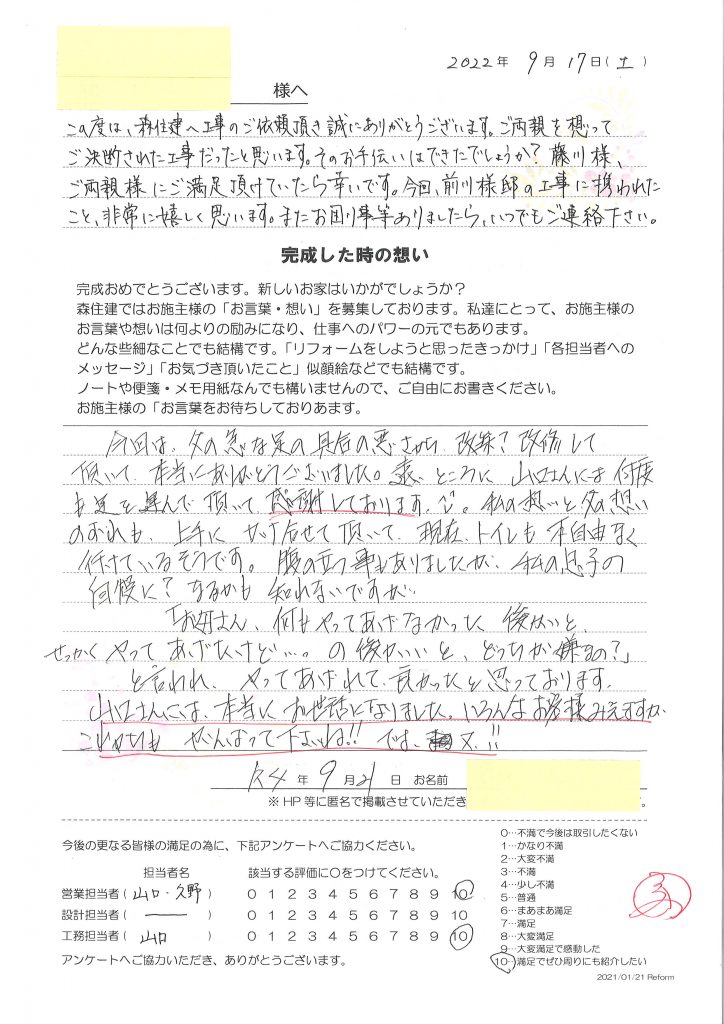 2022年 9月17日(土)
様へ
この度は、森住建へ工事のご依頼頂き誠にありがとうございます。ご両親を想って
ご決断された工事だったと思います。そのお手伝いはできたでしょうか? 藤川様、
ご両親様にご満足頂けていたら幸いです。今回、前川様邸の工事に携われた
こと、非常に嬉しく思います。またお困り事等ありましたら、いつでもご連絡下さい。
完成した時の想い
完成おめでとうございます。新しいお家はいかがでしょうか?
森住建ではお施主様の「お言葉・想い」を募集しております。私達にとって、お施主様の
お言葉や想いは何よりの励みになり、仕事へのパワーの元でもあります。
どんな些細なことでも結構です。「リフォームをしようと思ったきっかけ」「各担当者への
メッセージ」「お気づき頂いたこと」似顔絵などでも結構です。
ノートや便箋・メモ用紙なんでも構いませんので、ご自由にお書きください。
お施主様の「お言葉をお待ちしておりあます。
今回は、父の急な足の具合の悪さから、改築?改修して
頂いて、本当にありがとうございました。遠いところに山口さんには何度
も足を運んで頂いて、感謝しております。私の想いと父の想い
のずれも、上手に 合せて頂いて、現在、トイレも不自由なく
行けているそうです。腹の立つ事もありましたが、私の息子の
自慢に?なるかも知れないですが、
「お母さん、何もやってあげなかった後悔と、
せっかくやってあげたけど…。の後悔と、どっちが嫌なの?」
と言われ、やってあげれて良かったと思っております。
山口さんには、本当にお世話となりました。いろんなお客様みえますが、
これからも がんばって下さいね!! では、又!!
R4年 9月21日 お名前
※HP等に匿名で掲載させていただき
す。
今後の更なる皆様の満足の為に、下記アンケートへご協力ください。
担当者名 該当する評価に〇をつけてください。
営業担当者( 山口・久野 ) 0 1 2 3 4 5 6 7 8 9 10
設計担当者( ー ) 0 1 2 3 4 5 6 7 8 9 10
工務担当者( 山口 ) 0 1 2 3 4 5 6 7 8 9 10
アンケートへご協力いただき、ありがとうございます。
0…不満で今後は取引したくない
1…かなり不満
2…大変不満
3…不満
4…少し不満
5…普通
6…まあまあ満足
7…満足
8…大変満足
9…大変満足で感動した
10…満足でぜひ周りにも紹介したい
2021/01/21 Reform